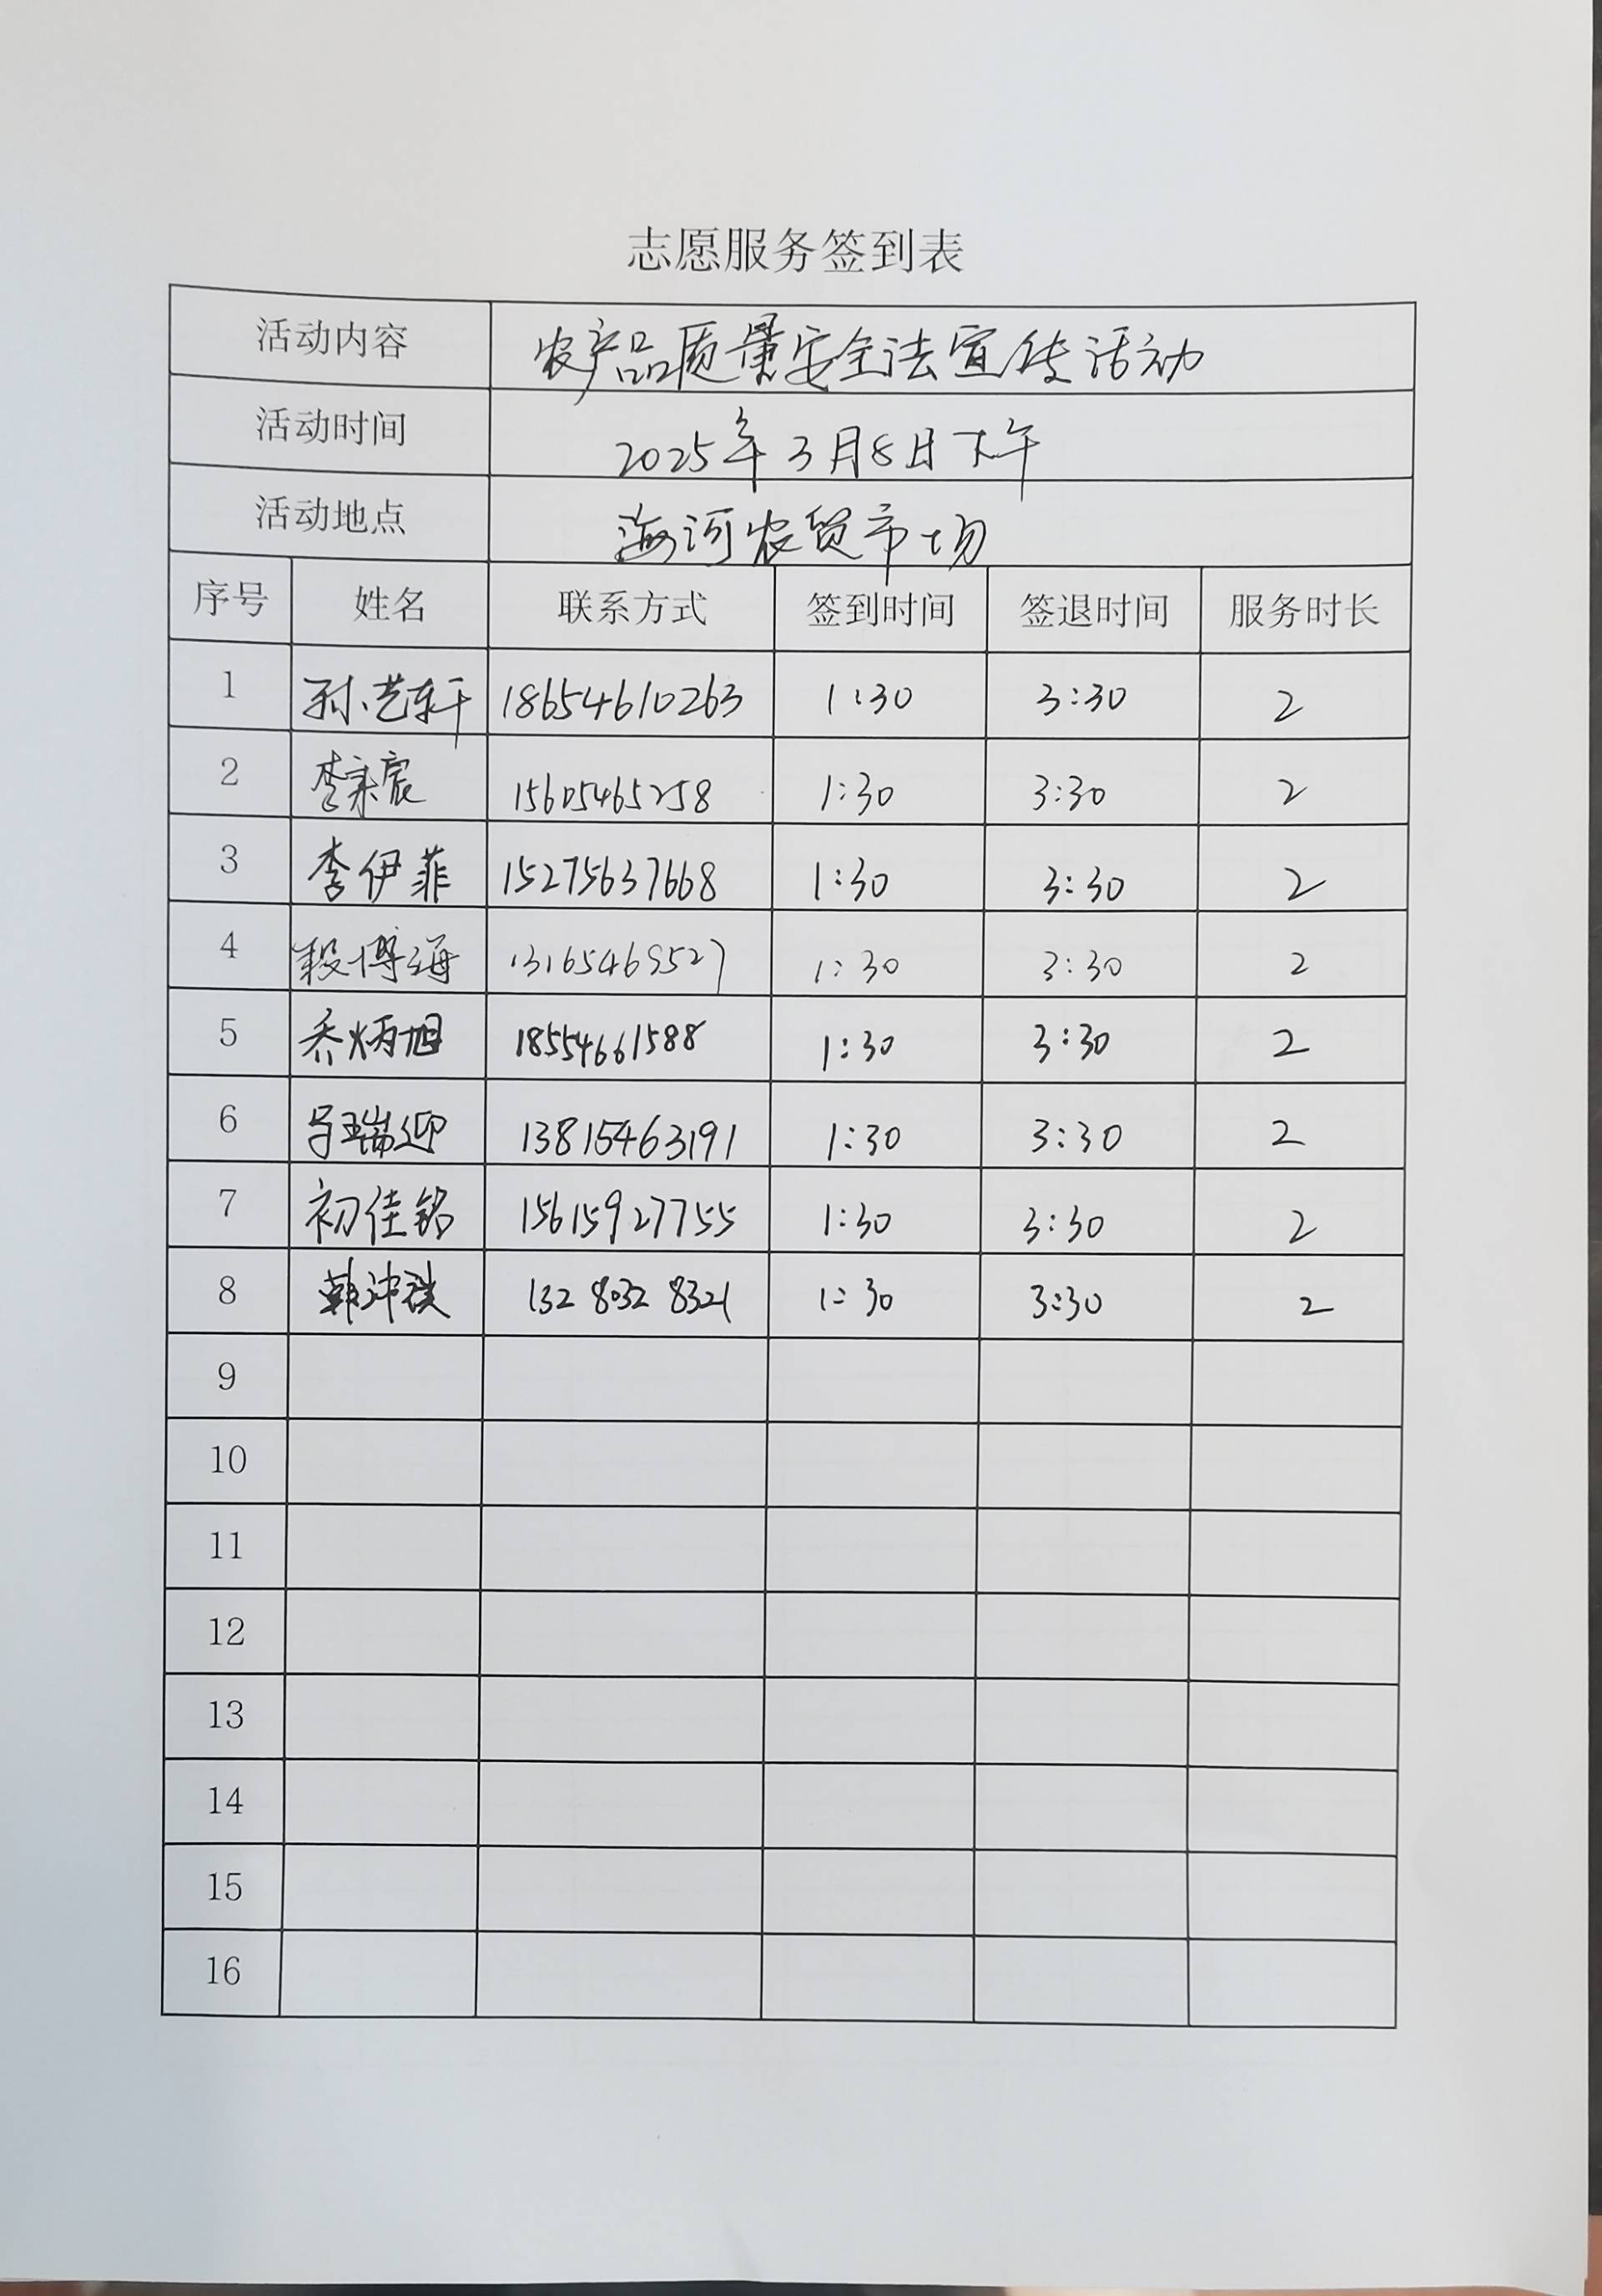 志愿服务签到表
活动内容 农产品质量安全法宣传活动
活动时间 2025年3月8日下午
活动地点 海河农贸市场
序号 姓名 联系方式 签到时间 签退时间 服务时长
1 孙艺轩 18654610263 1:30 3:30 2
2 李秉宸 15605465258 1:30 3:30 2
3 李伊菲 15275637668 1:30 3:30 2
4 段博海 13165469527 1:30 3:30 2
5 乔炳旭 18554661588 1:30 3:30 2
6 13815463191 1:30 3:30 2
7 初佳铭 15615927755 1:30 3:30 2
8 132 8032 8321 1:30 3:30 2
9
10
11
12
13
14
15
16